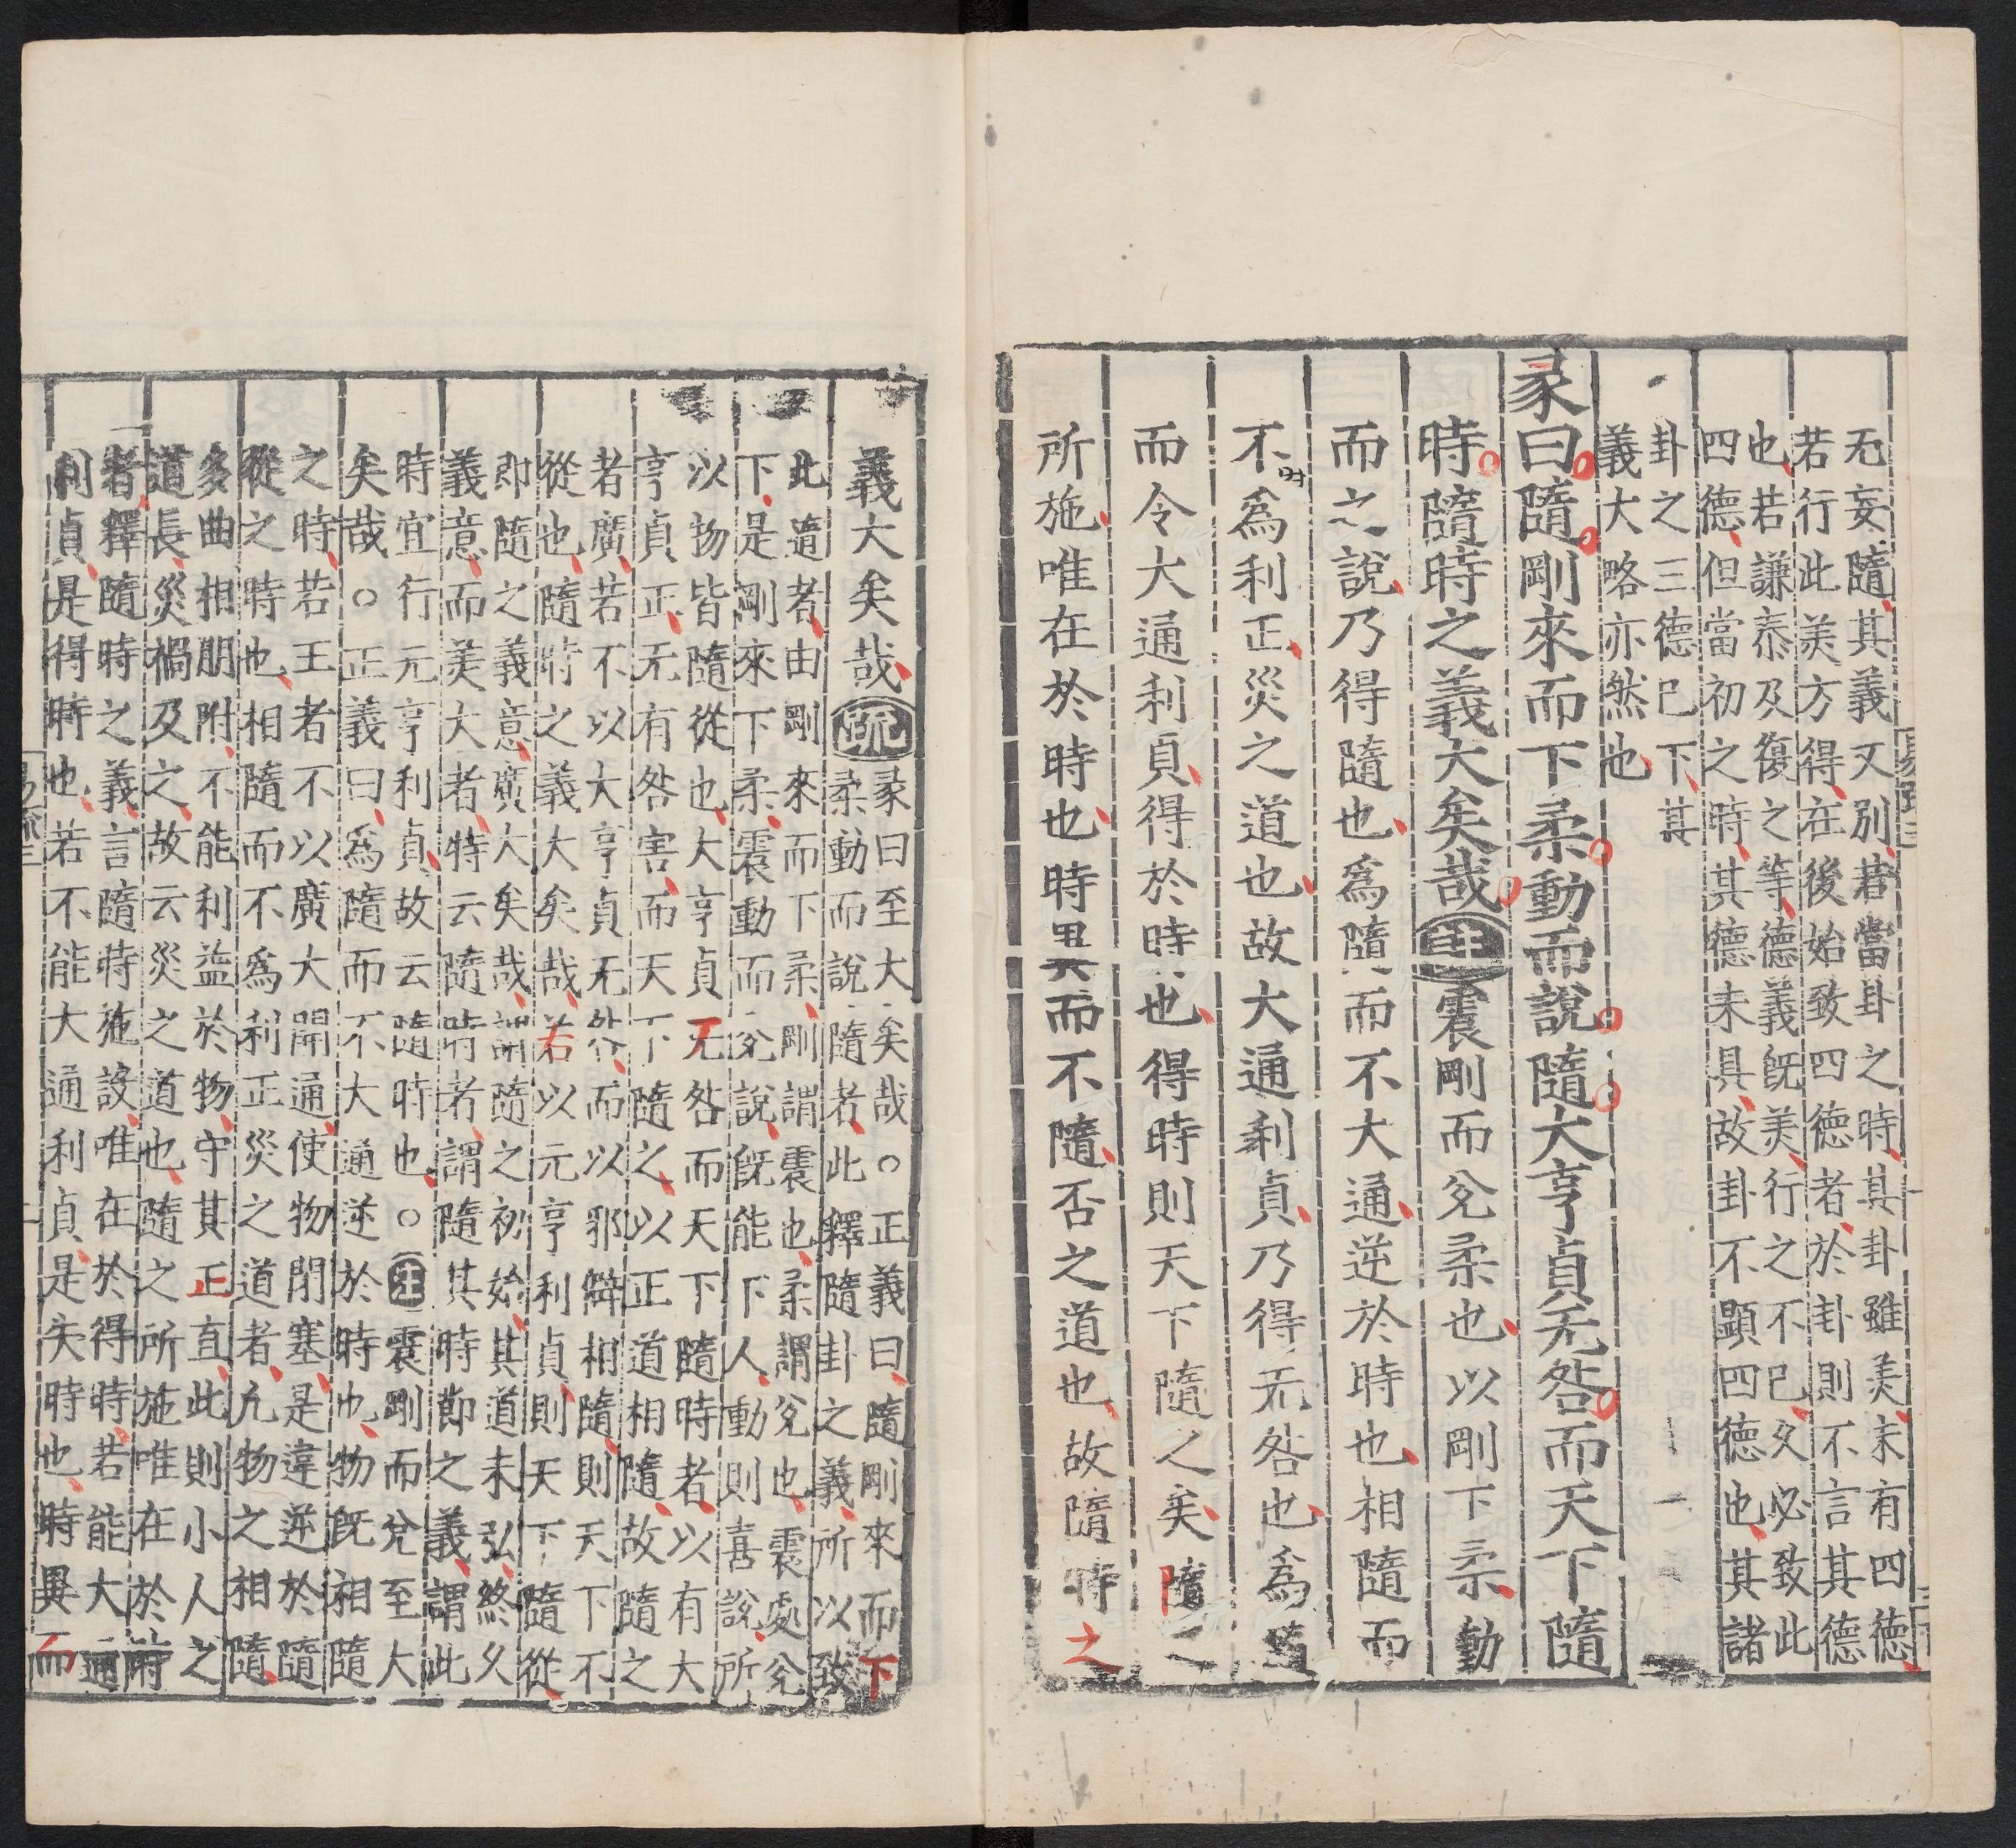 无妄隨其義又別若當卦之時其卦雖美未有四德
若行此美方得在後始致四德者於卦則不言其德
也若謙泰及復之等德義既美行之不已久必致此
四德但當初之時其德未具故卦不顯四德也其諸
卦之三德已下其
義大略亦然也
彖曰隨剛來而下柔動而說隨大亨貞无咎而天下隨
時隨時之義大矣哉注震剛而兌柔也以剛下柔動
而之說乃得隨也爲隨而不大通逆於時也相隨而
不爲利正災之道也故大通利貞乃得无咎也爲隨
而令大通利貞得於時也得時則天下隨之矣隨之
所施唯在於時也時異而不隨否之道也故隨時之
義大矣哉疏彖曰至大矣哉○正義曰隨剛來而下
柔動而說隨者此釋隨卦之義所以致
此隨者由剛來而下柔剛謂震也柔謂兌也震處兌
下是剛來下柔震動而兌說既能下人動則喜說所
以物皆隨從也大亨貞无咎而天下隨時者以有大
亨貞正无有咎害而天下隨之以正道相隨故隨之
者廣若不以大亨貞无咎而以邪僻相隨則天下不
從也隨時之義大矣哉若以元亨利貞則天下隨從
即隨之義意廣大矣哉謂隨之初始其道未弘終久
義意而美大者特云隨時者謂隨其時節之義謂此
時宜行元亨利貞故云隨時也○注震剛而兌至大
矣哉○正義曰爲隨而不大通逆於時也物既相隨
之時若王者不以廣大開通使物閉塞是違逆於隨
從之時也相隨而不爲利正災之道者凡物之相隨
多曲相朋附不能利益於物守其正直此則小人之
道長災禍及之故云災之道也隨之所施唯在於時
者釋隨時之義言隨時施設唯在於得時若能大通
利貞是得時也若不能大通利貞是失時也時異而